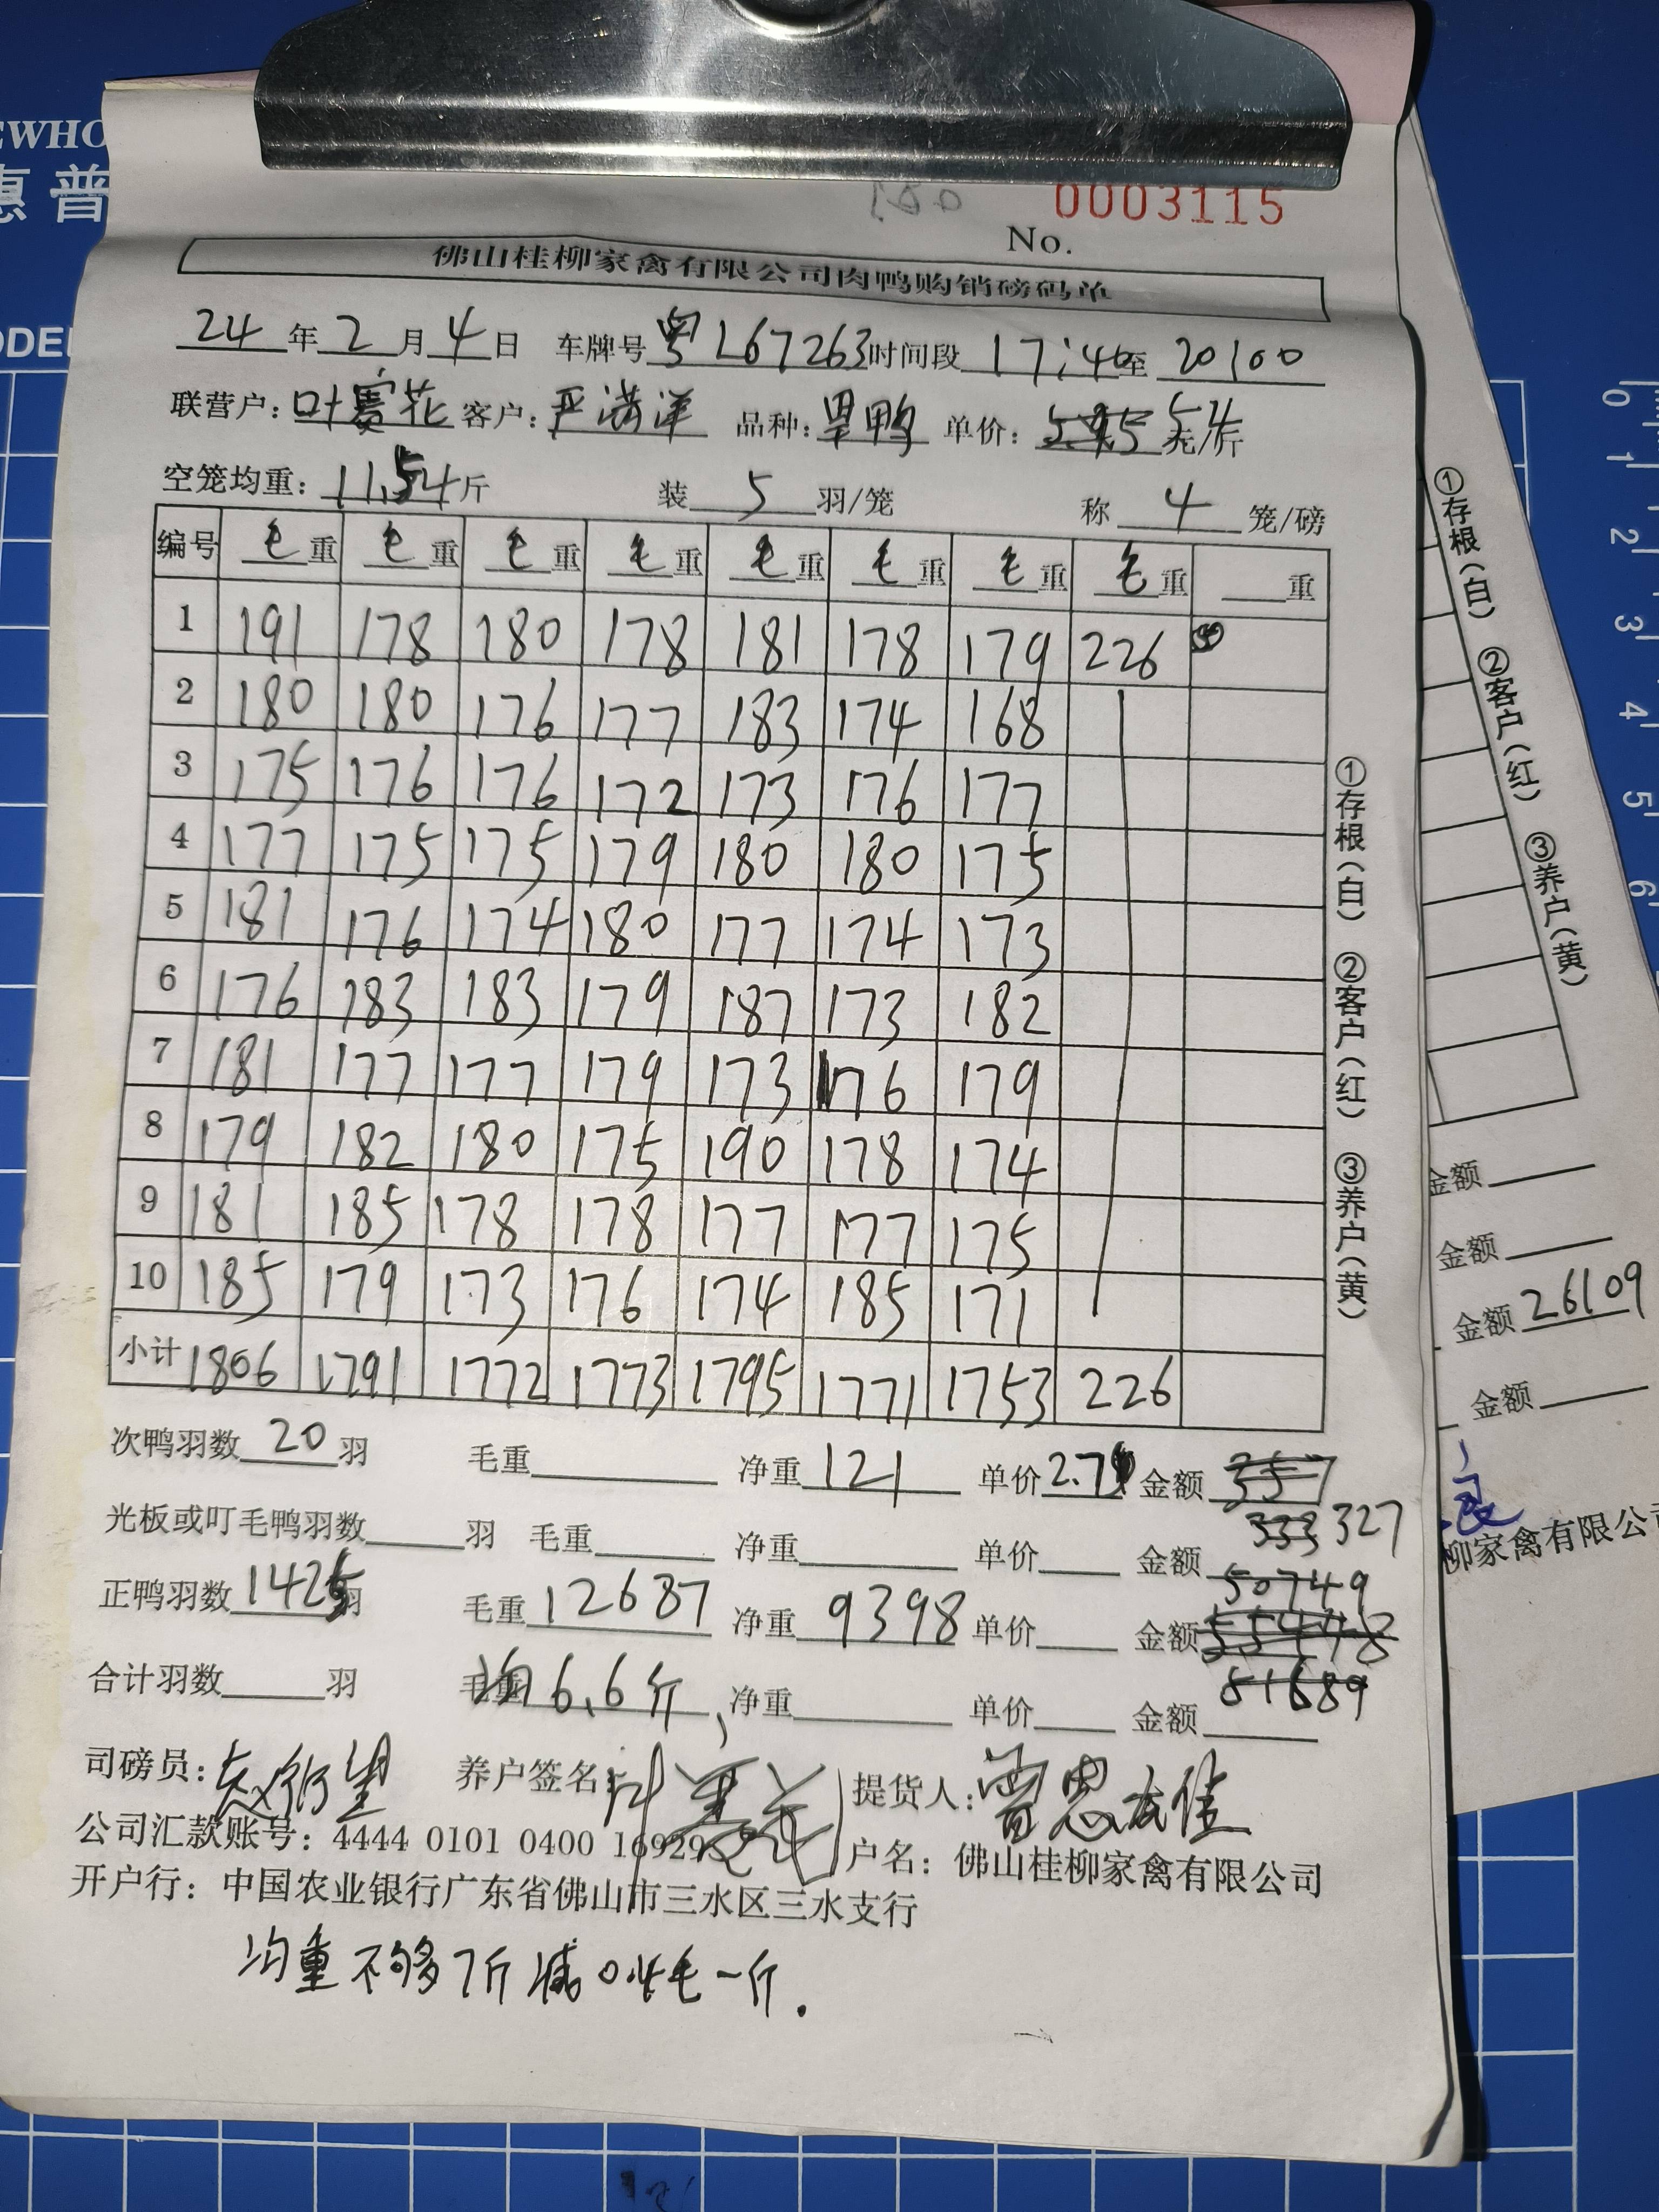 EWHO
惠普
ODEL
180 0003115
No.
佛山桂柳家禽有限公司肉鸭购销磅码单
24年2月4日 车牌号粤L67263时间段17:40至20:00
联营户:叶赛花 客户:严满洋 品种:旱鸭 单价:5.4元/斤
空笼均重:11.54斤 装5羽/笼 称4笼/磅
编号 毛重 毛重 毛重 毛重 毛重 毛重 毛重 毛重 重
1 191 178 180 178 181 178 179 226
2 180 180 176 177 183 174 168
3 175 176 176 172 173 176 177
4 177 175 175 179 180 180 175
5 181 176 174 180 177 174 173
6 176 183 183 179 187 173 182
7 181 177 177 179 173 176 179
8 179 182 180 175 190 178 174
9 181 185 178 178 177 177 175
10 185 179 173 176 174 185 171
小计 1806 1791 1772 1773 1795 1771 1753 226
次鸭羽数20羽 毛重 净重121 单价2.7 金额357
333 327
光板或叮毛鸭羽数 羽 毛重 净重 单价 金额
50749
正鸭羽数1425羽 毛重12687 净重9398 单价 金额55448
51689
合计羽数 羽 毛重均6.6斤, 净重 单价 金额
司磅员: 养户签名:叶赛花 提货人:
公司汇款账号:4444 0101 0400 16929 户名:佛山桂柳家禽有限公司
开户行:中国农业银行广东省佛山市三水区三水支行
均重不够7斤减0.4毛一斤.
①存根(白) ②客户(红) ③养户(黄)
①存根(白) ②客户(红) ③养户(黄)
金额
金额
金额26109
金额
柳家禽有限公司
0
1
2
3
4
5
6